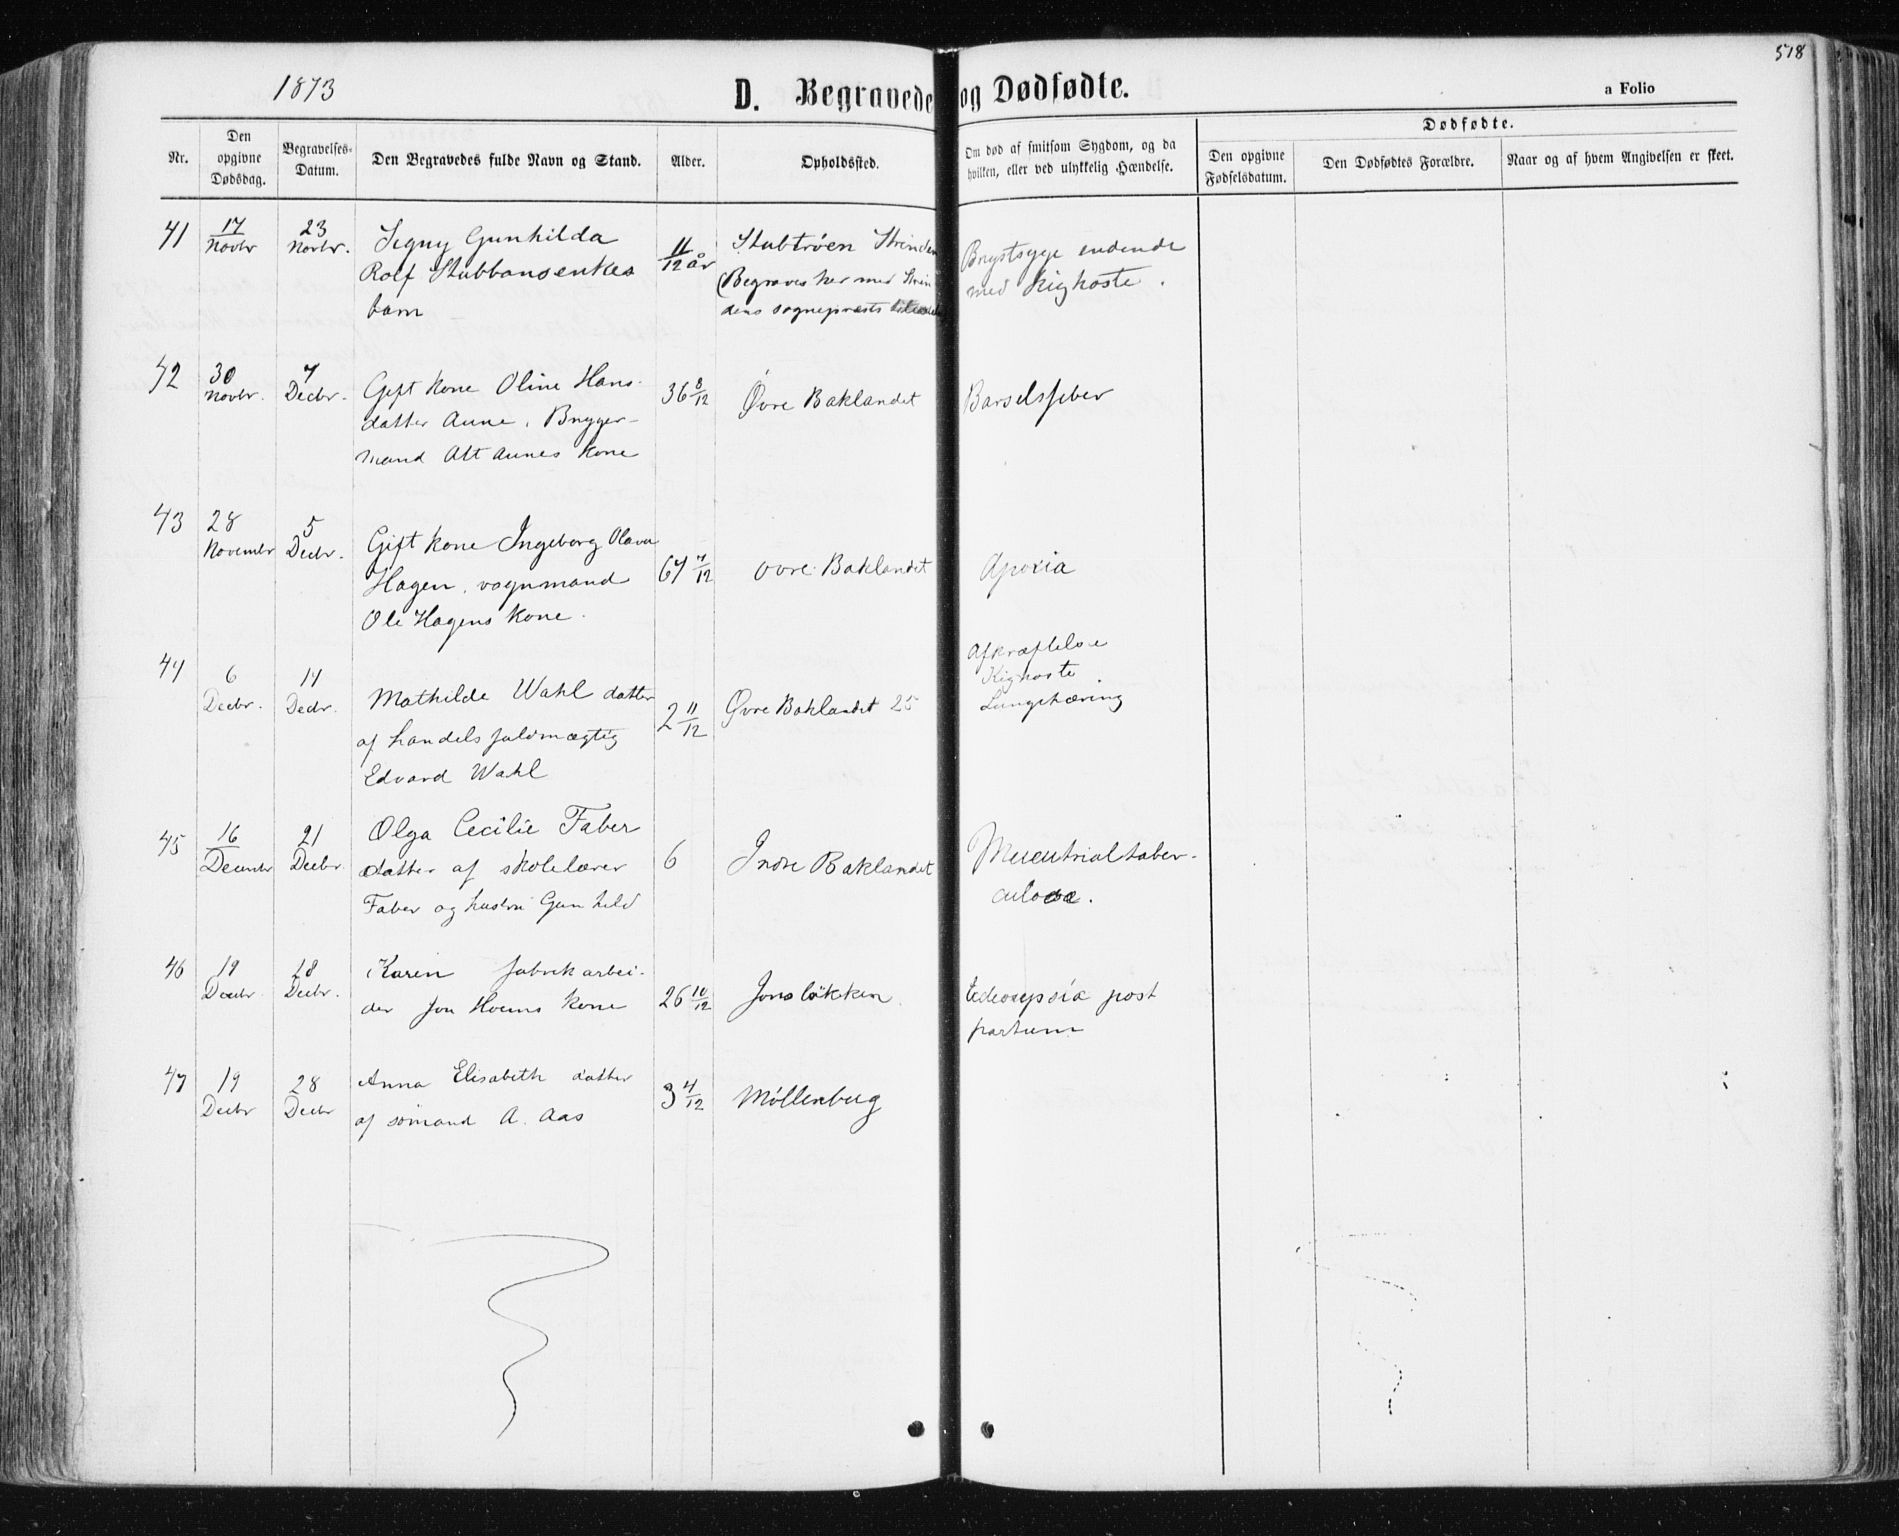 1873
518
D. Begravede og Dødfødte.
a Folio
Nr.
Den opgivne Dødsdag.
Begravelses-Datum.
Den Begravedes fulde Navn og Stand.
Alder.
Opholdssted.
Om død af smitsom Sygdom, og da
hvilken, eller ved ulykkelig Hændelse.
Dødfødte.
Den opgivne
Fødselsdatum.
Den Dødfødtes Forældre.
Naar og af hvem Angivelsen er skeet.
41
17 Novbr
23 Novbr.
Signy Gunhilda
Rolf Stubbansenkes
barn
11/12 år
Stubtrøen Strinden
(Begraves her med Strin
dens sognepræsts
Brystsyge endende
med Kighoste.
42
30 Novbr.
7 Decbr.
Gift kone Oline Hans-
datter Aune. Brygger-
mand Alt Aunes kone
36 8/12
Øvre Baklandet
Barselsfeber
43
28 Novembr
5 Decbr.
Gift kone Ingeborg Olava
Hagen, vognmand
Ole Hagens kone.
67 7/12
Øvre Baklandet
44
6 Decbr.
14 Decbr.
Mathilde Wahl datter
af handelsfuldmægtig
Edvard Wahl
2 11/12
Øvre Baklandet 25
Afkræftelse
Kighoste
Lungetæring
45
16 Decembr
21 Decbr.
Olga Cecilie Faber
datter af skolelærer
Faber og hustru Gunhild
6
Indre Baklandet
46
19 Decbr.
28 Decbr.
Karen fabrikarbei-
der Jon Hoems kone
26 10/12
Jonsløkken.
post
partum
47
19 Decbr
28 Decbr
Anna Elisabeth datter
af sømand A. Aas
3 4/12
Møllenberg